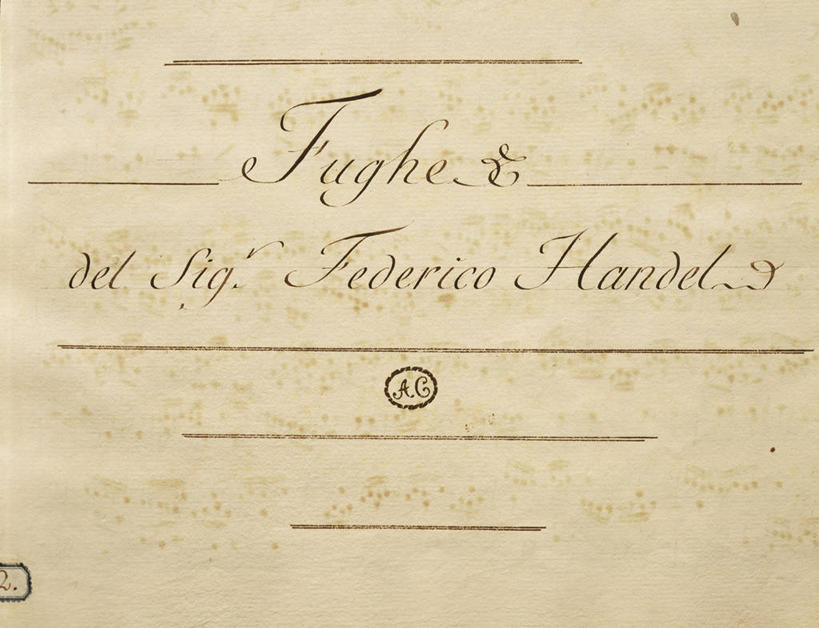 Fughe
del Sig.r Federico Handel
A.C
2.